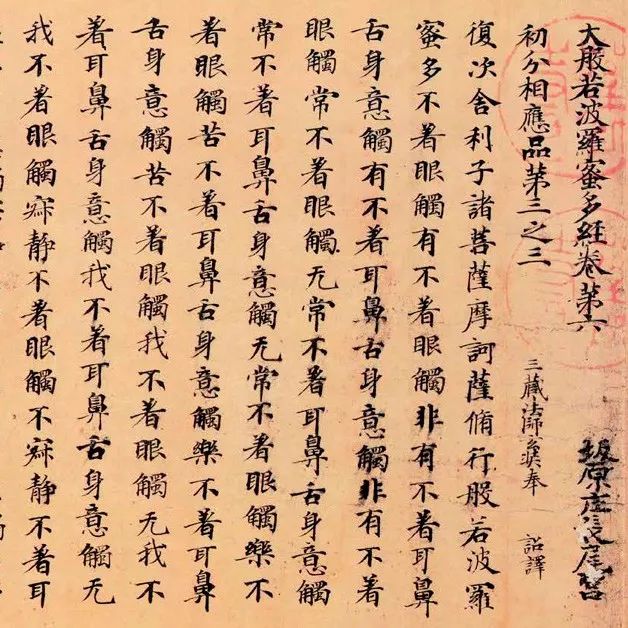 大般若波羅蜜多経卷第六 坂原庄長尾宮
初分相應品第三之三 三藏法師玄奘奉 詔譯
復次舍利子諸菩薩摩訶薩脩行般若波羅
蜜多不著眼觸有不著眼觸非有不著耳鼻
舌身意觸有不著耳鼻舌身意觸非有不著
眼觸常不著眼觸无常不著耳鼻舌身意觸
常不著耳鼻舌身意觸无常不著眼觸樂不
著眼觸苦不著耳鼻舌身意觸樂不著耳鼻
舌身意觸苦不著眼觸我不著眼觸无我不
著耳鼻舌身意觸我不著耳鼻舌身意觸无
我不著眼觸寂静不著眼觸不寂静不著耳